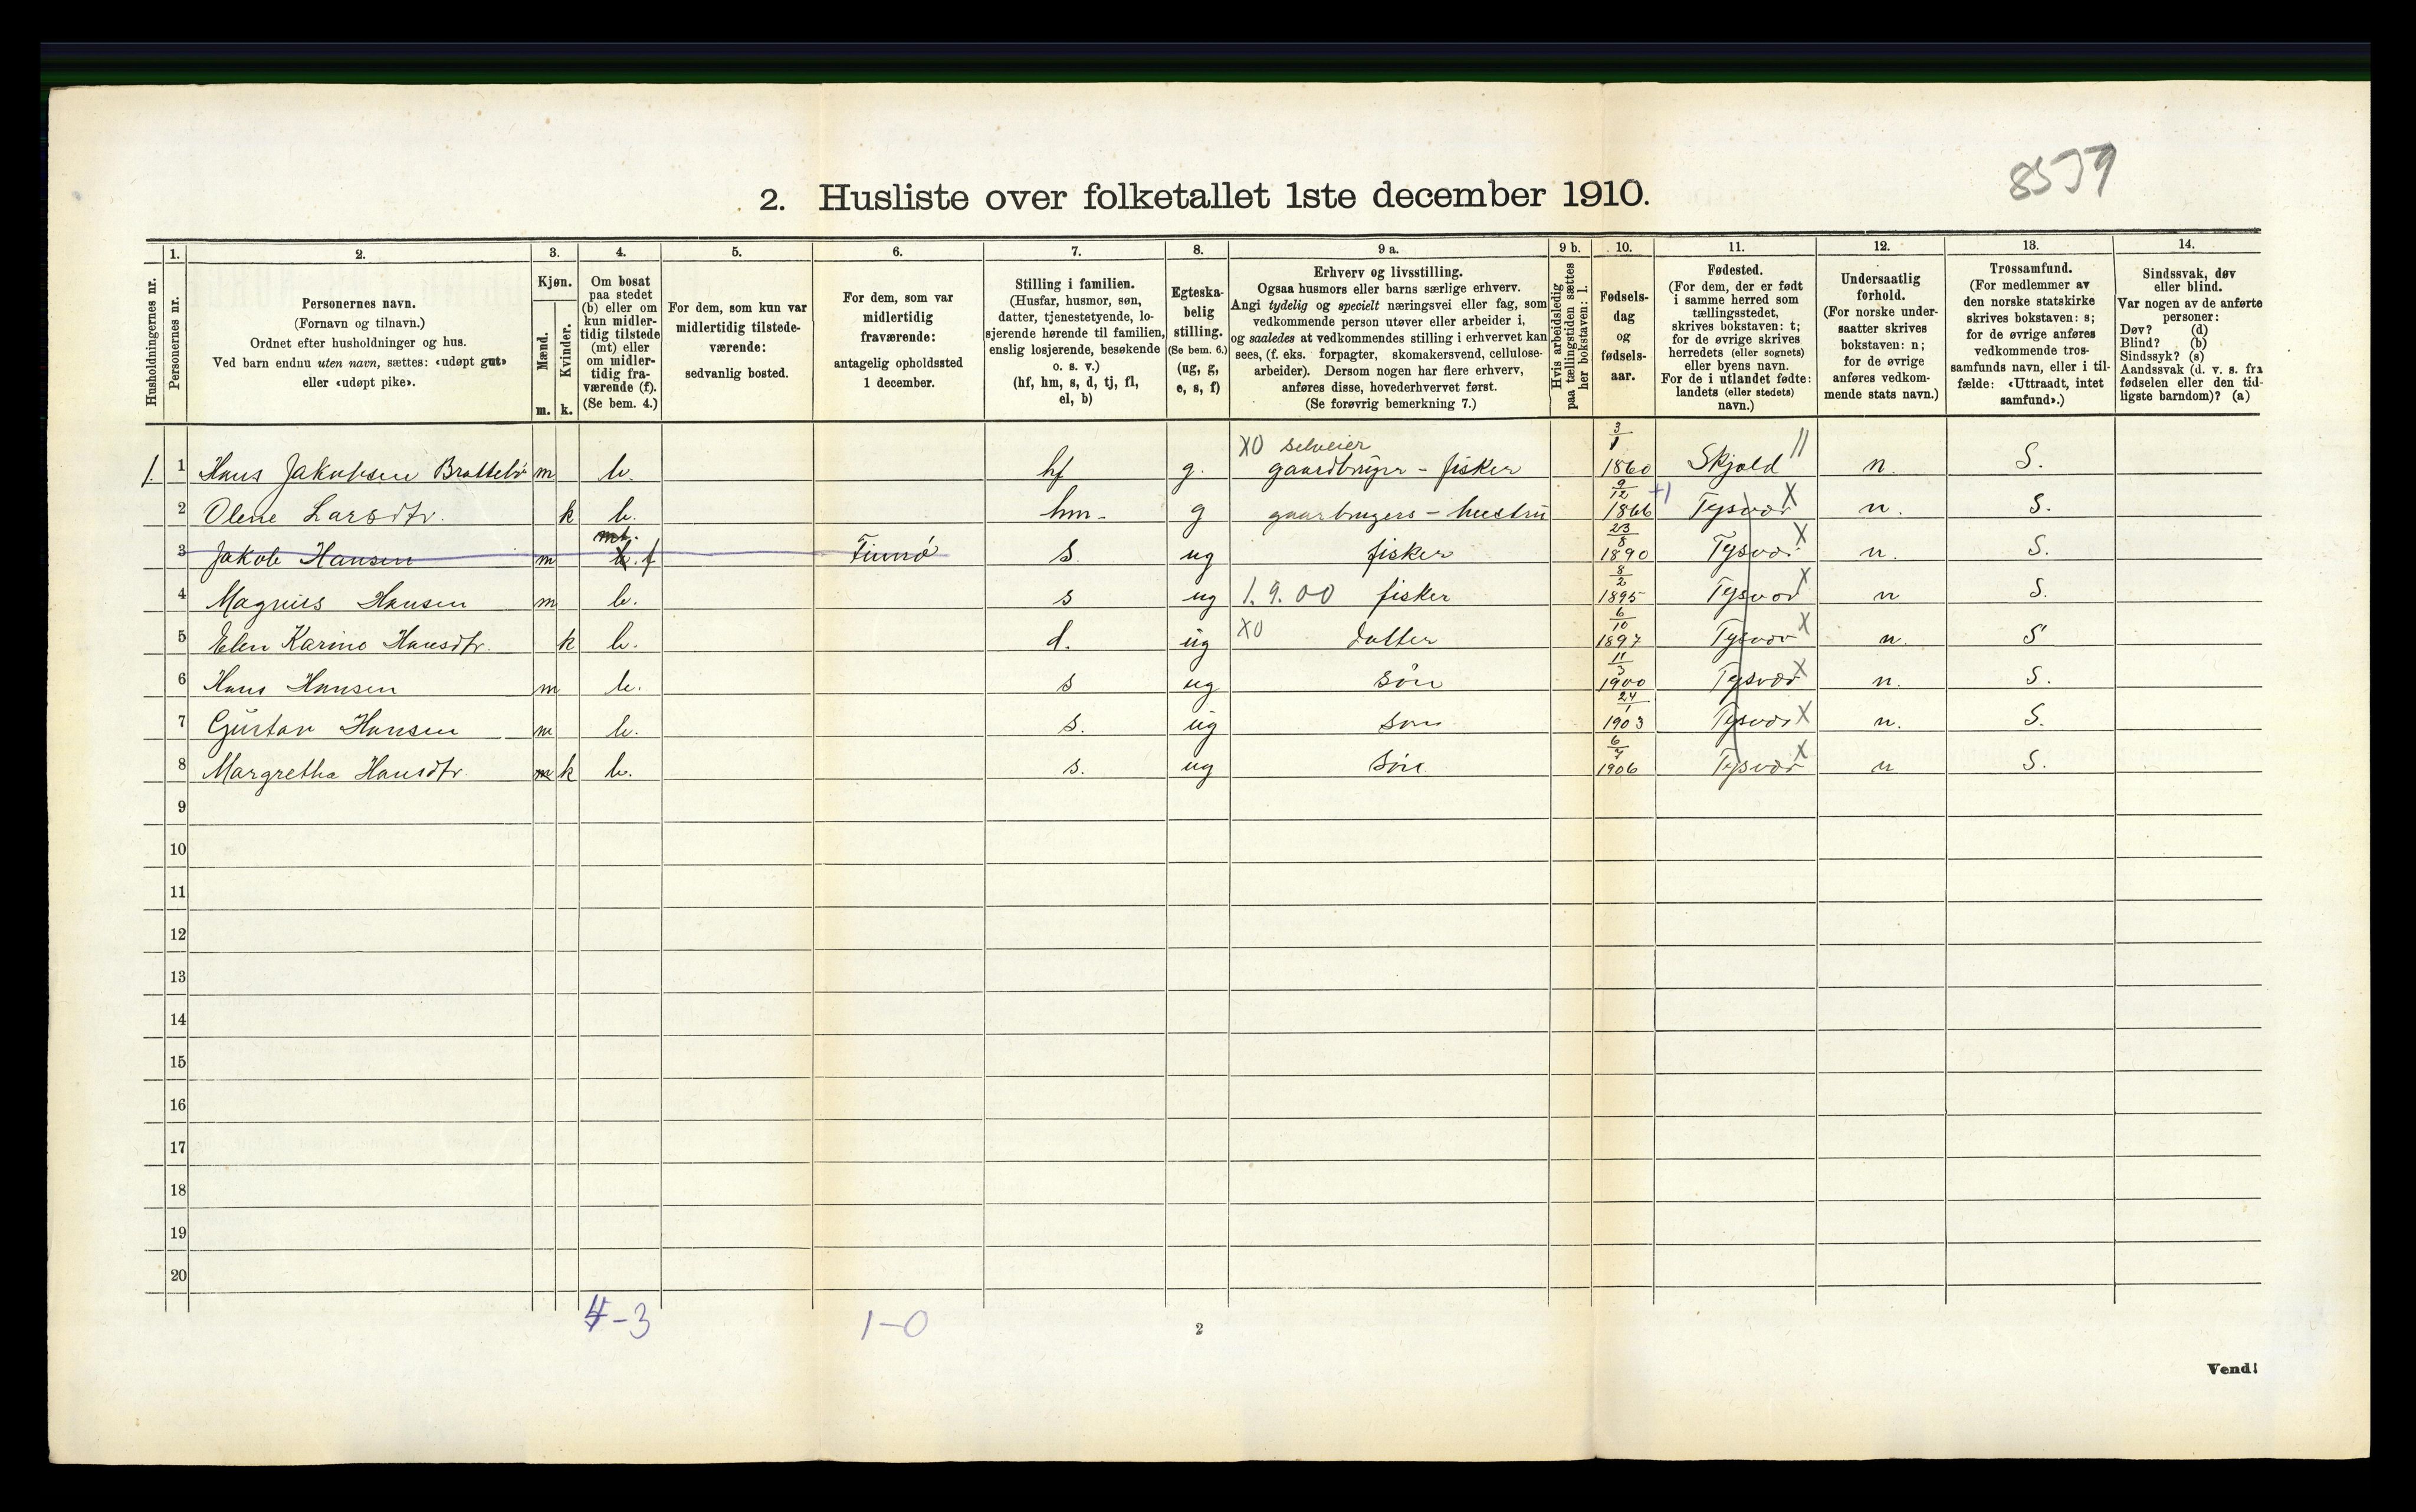 8539
2. Husliste over folketallet 1ste december 1910.
1. 2. 3. 4. 5. 6. 7. 8. 9 a. 9 b. 10. 11. 12. 13. 14.
Husholdningernes nr.
Personernes nr.
Personernes navn.
(Fornavn og tilnavn.)
Ordnet efter husholdninger og hus.
Ved barn endnu uten navn, sættes: «udøpt gut»
eller «udøpt pike».
Kjøn.
Mænd.
Kvinder.
m. k.
Om bosat
paa stedet
(b) eller om
kun midler-
tidig tilstede
(mt) eller
om midler-
tidig fra-
værende (f).
(Se bem. 4.)
For dem, som kun var
midlertidig tilstede-
værende:
sedvanlig bosted.
For dem, som var
midlertidig
fraværende:
antagelig opholdssted
1 december.
Stilling i familien.
(Husfar, husmor, søn,
datter, tjenestetyende, lo-
sjerende hørende til familien,
enslig losjerende, besøkende
o. s. v.)
(hf, hm, s, d, tj, fl,
el, b)
Egteska-
belig
stilling.
(Se bem. 6.)
(ug, g,
e, s, f)
Erhverv og livsstilling.
Ogsaa husmors eller barns særlige erhverv.
Angi tydelig og specielt næringsvei eller fag, som
vedkommende person utøver eller arbeider i,
og saaledes at vedkommendes stilling i erhvervet kan
sees, (f. eks. forpagter, skomakersvend, cellulose-
arbeider). Dersom nogen har flere erhverv,
anføres disse, hovederhvervet først.
(Se forøvrig bemerkning 7.)
Hvis arbeidsledig
paa tællingstiden sættes
her bokstaven: l.
Fødsels-
dag
og
fødsels-
aar.
Fødested.
(For dem, der er født
i samme herred som
tællingsstedet,
skrives bokstaven: t;
for de øvrige skrives
herredets (eller sognets)
eller byens navn.
For de i utlandet fødte:
landets (eller stedets)
navn.)
Undersaatlig
forhold.
(For norske under-
saatter skrives
bokstaven: n;
for de øvrige
anføres vedkom-
mende stats navn.)
Trossamfund.
(For medlemmer av
den norske statskirke
skrives bokstaven: s;
for de øvrige anføres
vedkommende tros-
samfunds navn, eller i til-
fælde: «Uttraadt, intet
samfund».)
Sindssvak, døv
eller blind.
Var nogen av de anførte
personer:
Døv? (d)
Blind? (b)
Sindssyk? (s)
Aandssvak (d. v. s. fra
fødselen eller den tid-
ligste barndom)? (a)
XO selveier 3/1
1. 1 Hans Jakobsen Brattebø m b. hf g. gaardbruger - fisker 1860 Skjold // n. S.
9/12 +1
2 Olene Larsdtr. k b. hm - g gaarbrugers - hustru 1866 Tysvær X n. S.
mt. 23/8
3 Jakob Hansen m b. f Finnø s. ug fisker 1890 Tysvær X n. S.
8/2
4 Magnus Hansen m b. s ug 1.9.00 fisker 1895 Tysvær X n S.
6/10
5 Elen Karine Hansdtr. k b. d. ug XO datter 1897 Tysvær X n. S
11/3
6 Hans Hansen m b. s ug søn 1900 Tysvær X n. S.
24/1
7 Gustav Hansen m b. s. ug søn 1903 Tysvær X n. S.
6/7
8 Margretha Hansdtr. m k b. s. ug søn 1906 Tysvær X n S.
9
10
11
12
13
14
15
16
17
18
19
20
4-3 1-0
2
Vend!